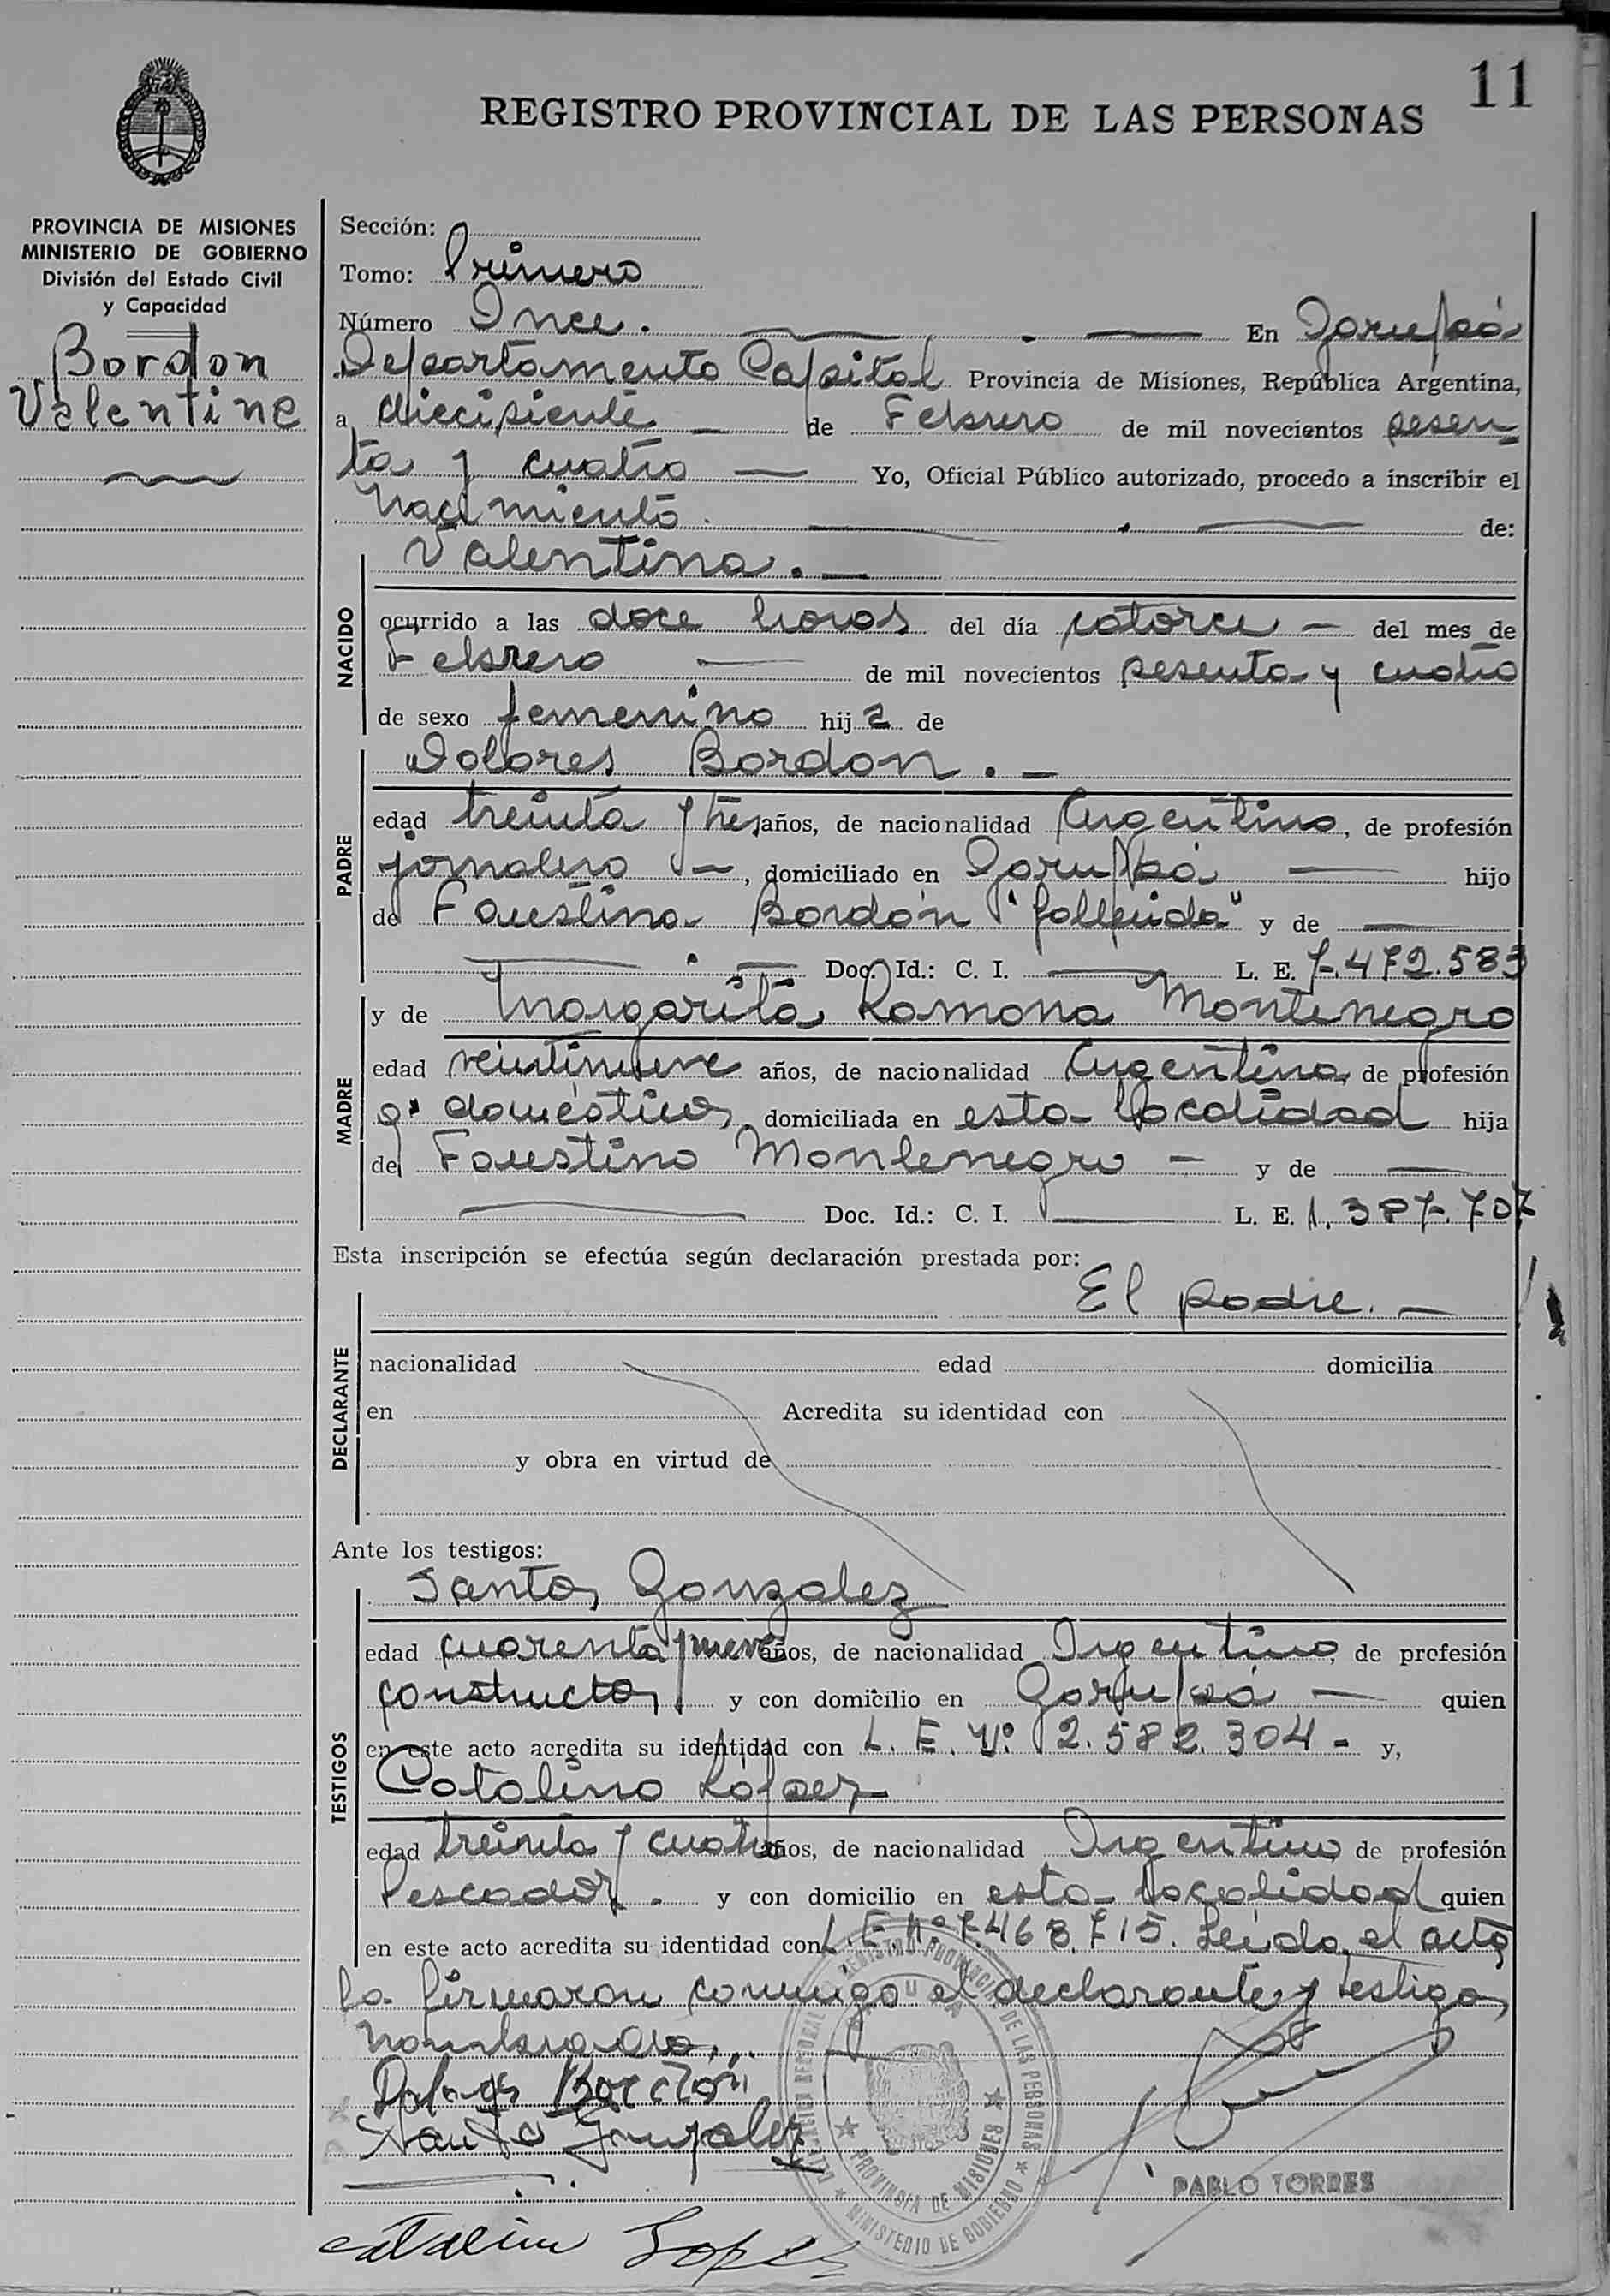 11
REGISTRO PROVINCIAL DE LAS PERSONAS
PROVINCIA DE MISIONES
MINISTERIO DE GOBIERNO
División del Estado Civil
y Capacidad
Bordon
Valentina
Sección:
Tomo: Primero
Número Once. En Garupá
Departamento Capital Provincia de Misiones, República Argentina,
a diecisiente de Febrero de mil novecientos sesen
ta y cuatro Yo, Oficial Público autorizado, procedo a inscribir el
Nacimiento. de:
NACIDO
Valentina.
ocurrido a las doce horas del día catorce del mes de
Febrero de mil novecientos sesenta y cuatro
de sexo femenino hija de
PADRE
Dolores Bordon.
edad treinta y tres años, de nacionalidad Argentino, de profesión
jornalero, domiciliado en Garupá hijo
de Faustina Bordón "fallecida" y de
Doc. Id.: C. I. L. E. 7.472.583
MADRE
y de Margarita Ramona Montenegro
edad veintinueve años, de nacionalidad Argentina, de profesión
q. domésticos, domiciliada en esta localidad hija
de Faustino Montenegro y de
Doc. Id.: C. I. L. E. 1.387.707
Esta inscripción se efectúa según declaración prestada por:
El padre.
DECLARANTE
nacionalidad edad domicilia
en Acredita su identidad con
y obra en virtud de
Ante los testigos:
TESTIGOS
Santos Gonzalez
edad cuarenta y nueve años, de nacionalidad Argentino, de profesión
constructor y con domicilio en Garupá quien
en este acto acredita su identidad con L. E. Nº 2.582.304 - y,
Catalino López
edad treinta y cuatro años, de nacionalidad Argentino de profesión
Pescador. y con domicilio en esta localidad quien
en este acto acredita su identidad con L. E. Nº 7.468.715. Leída el acta
la firmaron conmigo el declarante y testigos
nombrados.
Dolores Bordon
Santo Gonzalez
PABLO TORRES
catalino Lopez
REGISTRO PROVINCIAL DE LAS PERSONAS
PROVINCIA DE MISIONES
MINISTERIO DE GOBIERNO